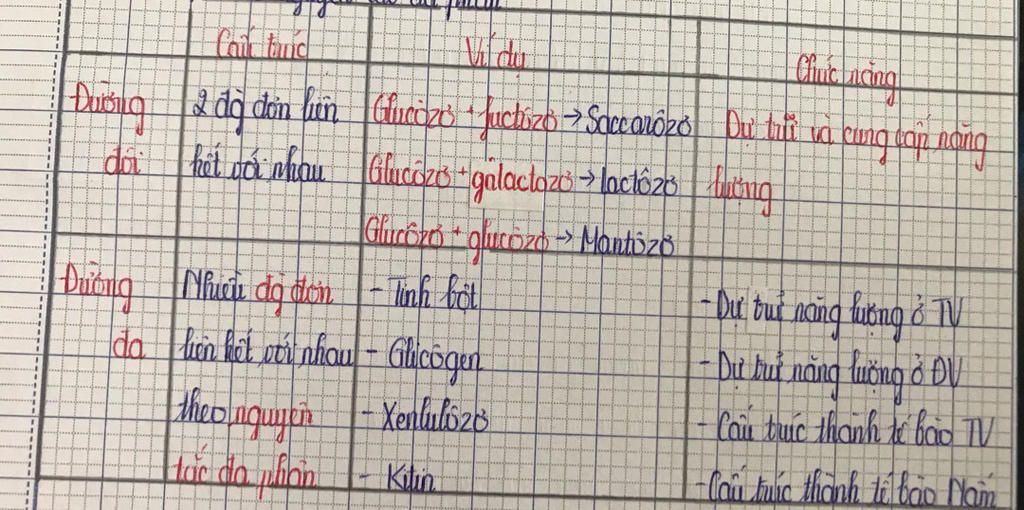 nguyên tắc đa phân
Cấu trúc Ví dụ Chức năng
Đường 2 đg đơn liên Glucôzơ + fuctôzơ → Saccarôzơ Dự trữ và cung cấp năng
đôi kết với nhau Glucôzơ + galactozơ → lactôzơ lượng
Glucôzơ + glucôzơ → Mantôzơ
Đường Nhiều đg đơn - Tinh bột - Dự trữ năng lượng ở TV
đa liên kết với nhau - Glicôgen - Dự trữ năng lượng ở ĐV
theo nguyên - Xenlulôzơ - Cấu trúc thành tế bào TV
tắc đa phân - Kitin - Cấu trúc thành tế bào Nấm